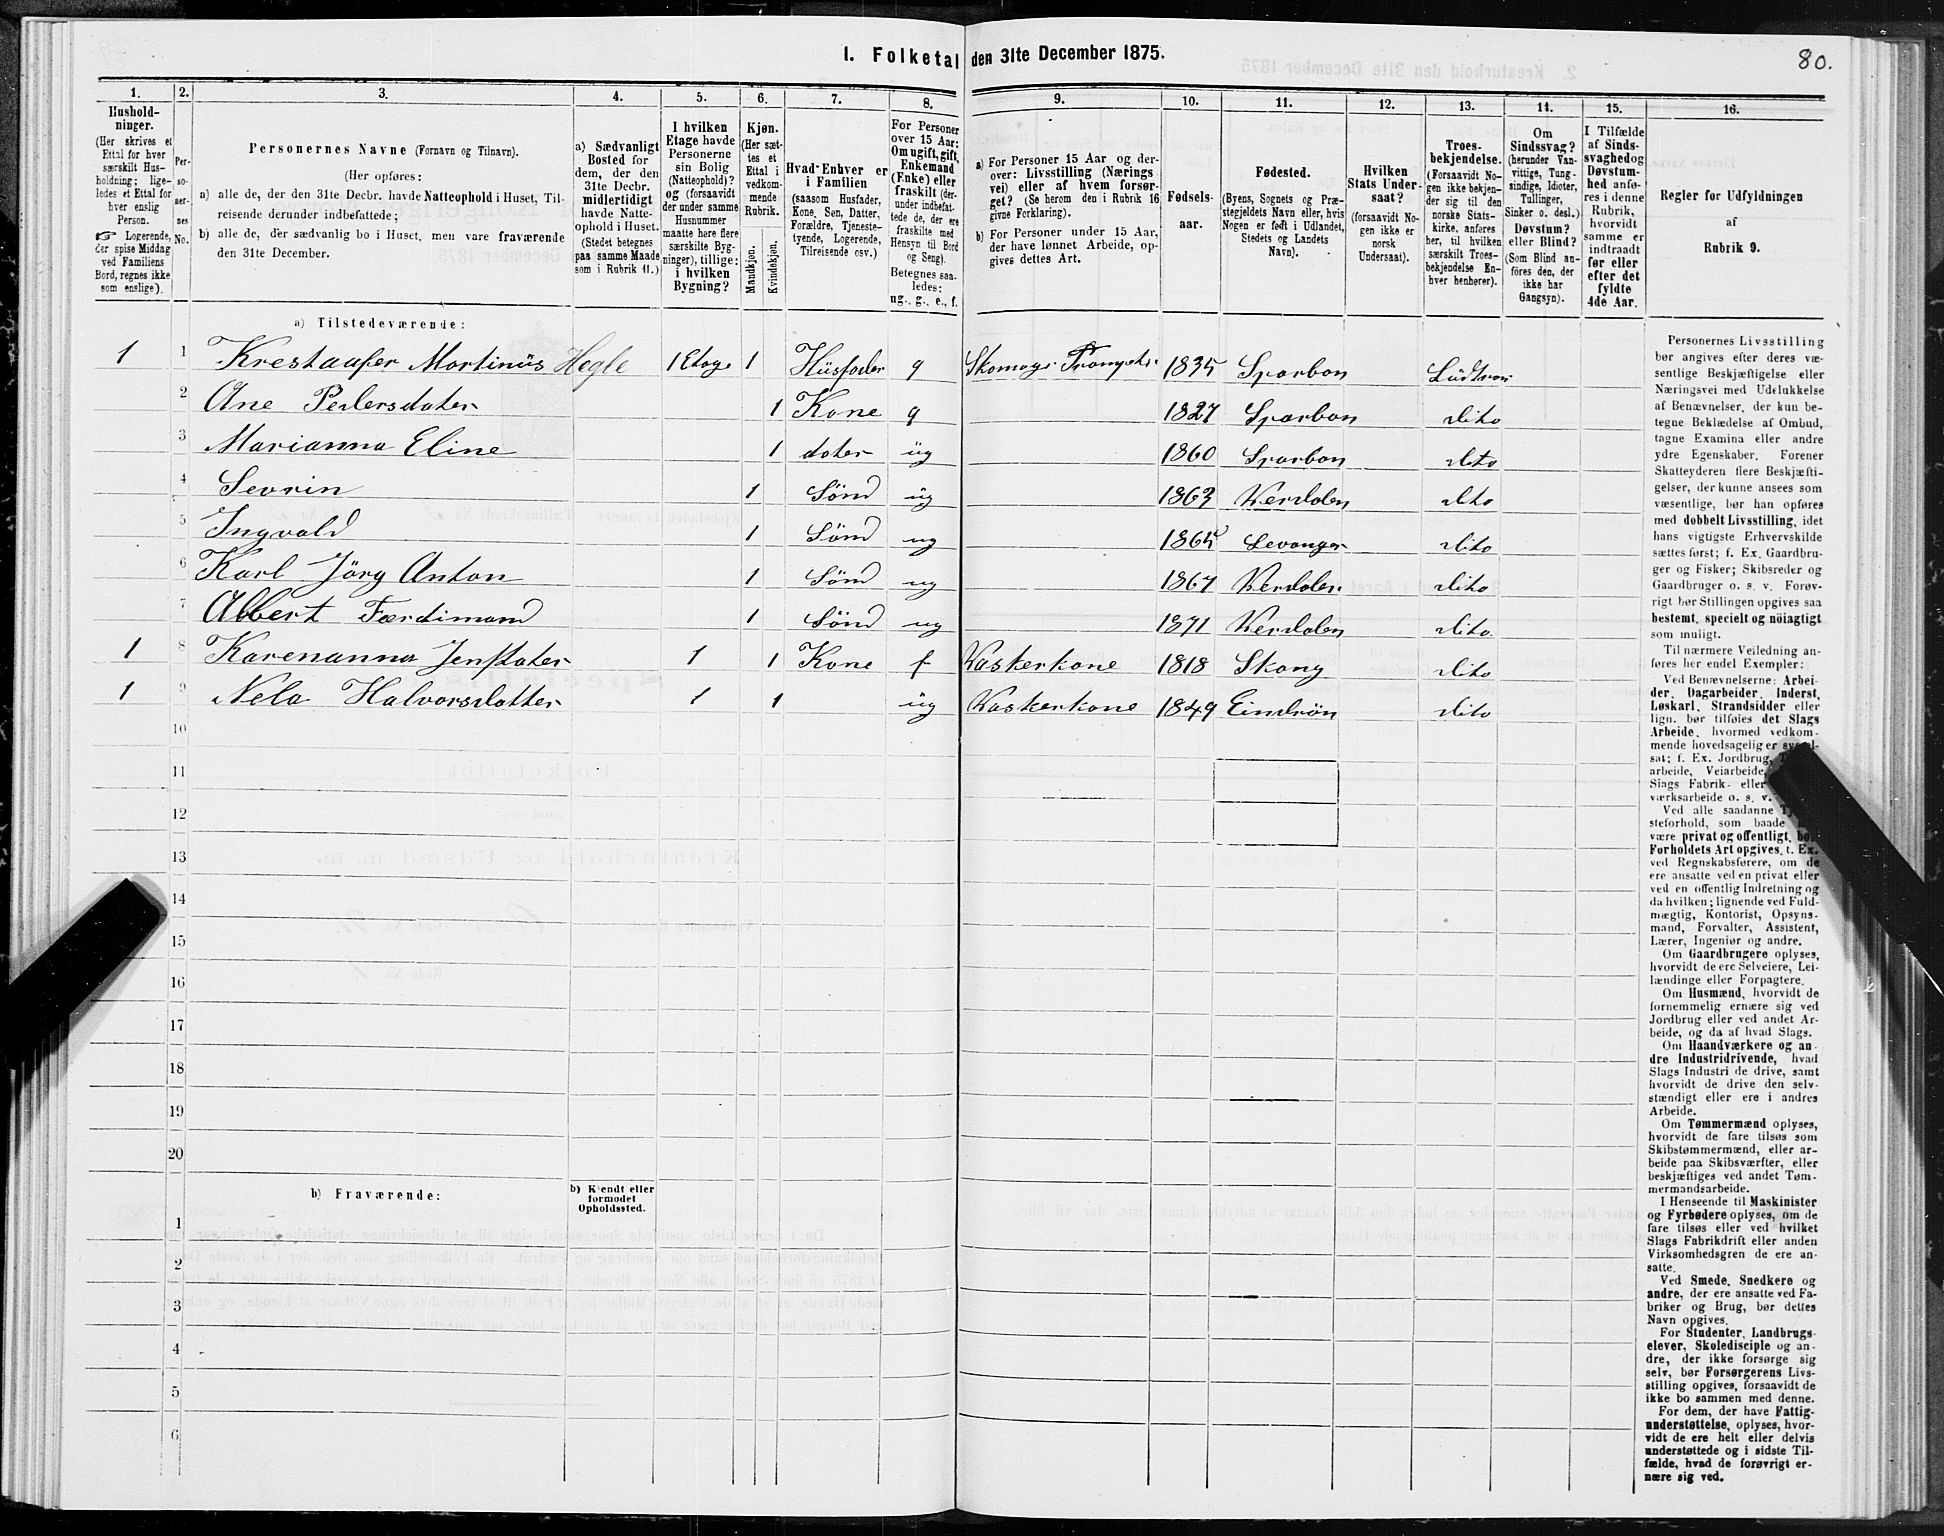 I. Folketal den 31te December 1875.
80.
1.
Hushold-
ninger.
(Her skrives et
Ettal for hver
særskilt Hus-
holdning; lige-
ledes et Ettal for
hver enslig
Person.
☞ Logerende,
der spise Middag
ved Familiens
Bord, regnes ikke
som enslige).
2.
Per-
so-
ner-
nes
No.
3.
Personernes Navne (Fornavn og Tilnavn).
(Her opføres:
a) alle de, der den 31te Decbr. havde Natteophold i Huset, Til-
reisende derunder indbefattede;
b) alle de, der sædvanlig bo i Huset, men vare fraværende
den 31te December.
4.
a) Sædvanligt
Bosted for
dem, der den
31te Decbr.
midlertidigt
havde Natte-
ophold i Huset.
(Stedet betegnes
paa samme Maade
som i Rubrik 11.)
5.
I hvilken
Etage havde
Personerne
sin Bolig
(Natteophold)?
og (forsaavidt
der under samme
Husnummer
maatte høre flere
særskilte Byg-
ninger), tillige:
i hvilken
Bygning?
6.
Kjøn.
(Her sæt-
tes et
Ettal i
vedkom-
mende
Rubrik.
Mandkjøn.
Kvindekjøn.
7.
Hvad Enhver er
i Familien
(saasom Husfader,
Kone, Søn, Datter,
Forældre, Tjeneste-
tyende, Logerende,
Tilreisende osv.)
8.
For Personer
over 15 Aar:
Om ugift, gift,
Enkemand
(Enke) eller
fraskilt (der-
under indbefat-
tede de, der ere
fraskilte med
Hensyn til Bord
og Seng).
Betegnes saa-
ledes:
ug., g., e., f.
9.
a) For Personer 15 Aar og der-
over: Livsstilling (Nærings
vei) eller af hvem forsør-
get? (Se herom den i Rubrik 16
givne Forklaring).
b) For Personer under 15 Aar,
der have lønnet Arbeide, op-
gives dettes Art.
10.
Fødsels-
aar.
11.
Fødested.
(Byens, Sognets og Præ-
stegjeldets Navn eller, hvis
Nogen er født i Udlandet,
Stedets og Landets
Navn).
12.
Hvilken
Stats Under-
saat?
(forsaavidt No-
gen ikke er
norsk
Undersaat).
13.
Troes-
bekjendelse.
(Forsaavidt No-
gen ikke bekjen-
der sig til den
norske Stats-
kirke, anføres
her, til hvilken
særskilt Troes-
bekjendelse En-
hver henhører).
14.
Om
Sindssvag?
(herunder Van-
vittige, Tung-
sindige, Idioter,
Tullinger,
Sinker o. desl.)
Døvstum?
eller Blind?
(Som Blind an-
føres den, der
ikke har
Gangsyn).
15.
I Tilfælde
af Sinds-
svaghed og
Døvstum-
hed anfø-
res i denne
Rubrik,
hvorvidt
samme er
indtraadt
før eller
efter det
fyldte
4de Aar.
16.
Regler for Udfyldningen
af
Rubrik 9.
a) Tilstedeværende:
1 1 Krestaafer Martinus Hegle 1 Etage 1 Husfader g Skomager Trompeter 1835 Sparbon Ludtran
2 Ane Pedersdater 1 Kone g 1827 Sparbon dito
3 Marianna Eline 1 dater ug 1860 Sparbon dito
4 Sevrin 1 Sønd ug 1863 Verdalen dito
5 Ingvald 1 Sønd ug 1865 Levanger dito
6 Karl Jørg Anton 1 Sønd ug 1867 Verdalen dito
7 Albert Færdinand 1 Sønd ug 1871 Verdalen dito
1 8 Karenanna Jensdater 1 1 Kone f Vaskerkone 1818 Skong dito
1 9 Nela Halvorsdatter 1 1 ug Vaskerkone 1849 Eindrøn dito
10
11
12
13
14
15
16
17
18
19
20
b) Fraværende:
b) Kjendt eller
formodet
Opholdssted.
1
2
3
4
5
6
Personernes Livsstilling
bør angives efter deres væ-
sentlige Beskjæftigelse eller
Næringsvei med Udelukkelse
af Benævnelser, der kun be-
tegne Beklædelse af Ombud,
tagne Examina eller andre
ydre Egenskaber. Forener
Skatteyderen flere Beskjæfti-
gelser, der kunne ansees som
væsentlige, bør han opføres
med dobbelt Livsstilling, idet
hans vigtigste Erhvervskilde
sættes først; f. Ex. Gaardbru-
ger og Fisker; Skibsreder og
Gaardbruger o. s. v. Forøv-
rigt bør Stillingen opgives saa
bestemt, specielt og nöiagtigt
som muligt.
Til nærmere Veiledning an-
føres her endel Exempler:
Ved Benævnelserne: Arbei-
der, Dagarbeider, Inderst,
Løskarl, Strandsidder eller
lign. bør tilføies det Slags
Arbeide, hvormed vedkom-
mende hovedsagelig er syssel-
sat; f. Ex. Jordbrug,
arbeide, Veiarbeide,
Slags Fabrik- eller
værksarbeide o. s. v.
Ved alle saadanne
steforhold, som baade
være privat og offentligt, bør
Forholdets Art opgives, t. Ex.
ved Regnskabsførere, om de
ere ansatte ved en privat eller
ved en offentlig Indretning og
da hvilken; lignende ved Fuld-
mægtig, Kontorist, Opsyns-
mand, Forvalter, Assistent,
Lærer, Ingeniør og andre.
Om Gaardbrugere oplyses,
hvorvidt de ere Selveiere, Lei-
lændinge eller Forpagtere.
Om Husmænd, hvorvidt de
fornemmelig ernære sig ved
Jordbrug eller ved andet Ar-
beide, og da af hvad Slags.
Om Haandværkere og an-
dre Industridrivende, hvad
Slags Industri de drive, samt
hvorvidt de drive den selv-
stændigt eller ere i andres
Arbeide.
Om Tømmermænd oplyses,
hvorvidt de fare tilsøs som
Skibstømmermænd, eller ar-
beide paa Skibsværfter, eller
beskjæftiges ved andet Tøm-
mermandsarbeide.
I Henseende til Maskinister
og Fyrbødere oplyses, om de
fare tilsøs eller ved hvilket
Slags Fabrikdrift eller anden
Virksomhedsgren de ere an-
satte.
Ved Smede, Snedkere og
andre, der ere ansatte ved Fa-
briker og Brug, bør dettes
Navn opgives.
For Studenter, Landbrugs-
elever, Skoledisciple og an-
dre, der ikke forsørge sig
selv, bør Forsørgerens Livs-
stilling opgives, forsaavidt de
ikke bo sammen med denne.
For dem, der have Fattig-
understøttelse, oplyses, hvor-
vidt de ere helt eller delvis
understøttede og i sidste Til-
fælde, hvad de forøvrigt er-
nære sig ved.